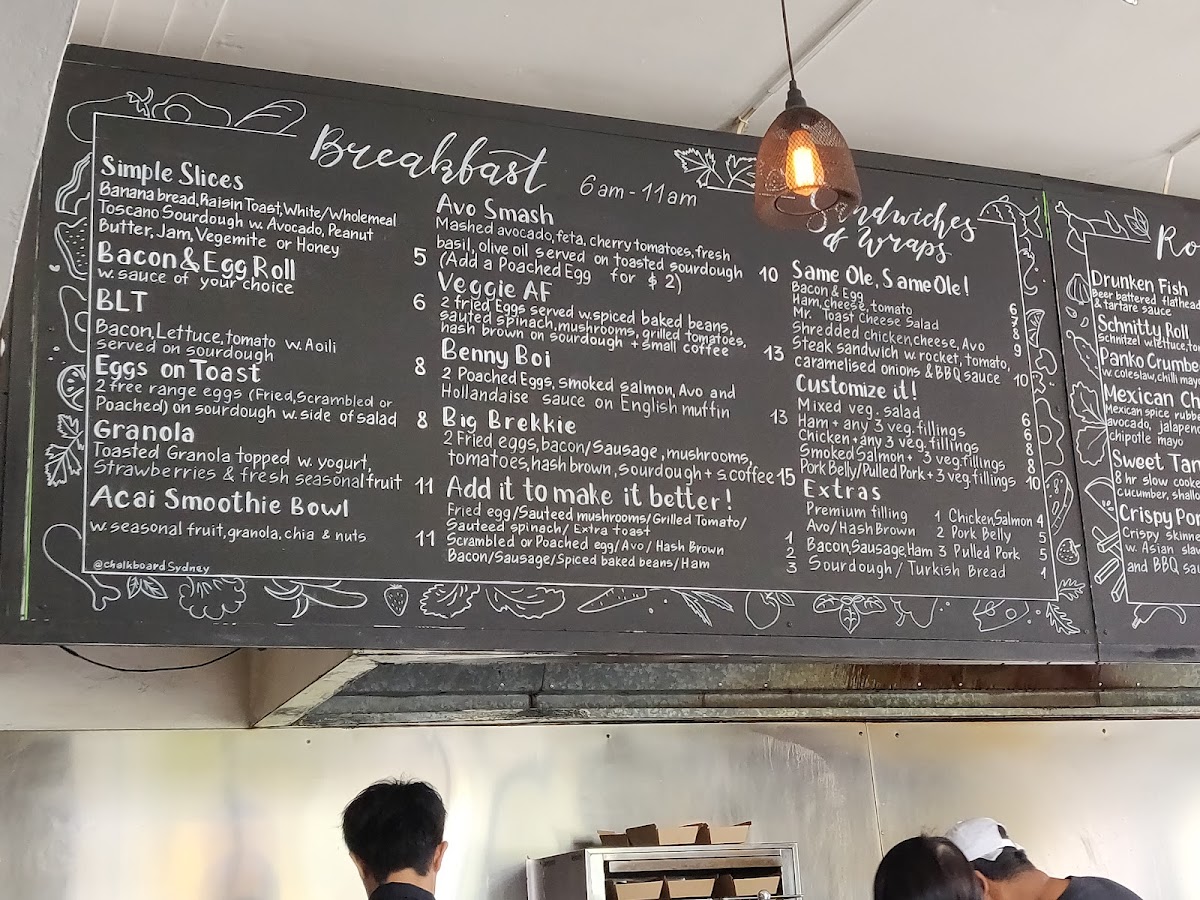 Breakfast
6am - 11am
Simple Slices
Banana bread, Raisin Toast, White/Wholemeal
Toscano Sourdough w. Avocado, Peanut
Butter, Jam, Vegemite or Honey 5
Bacon & Egg Roll
w. sauce of your choice 6
BLT
Bacon, Lettuce, tomato w. Aoili
served on sourdough 8
Eggs on Toast
2 free range eggs (Fried, Scrambled or
Poached) on sourdough w. side of salad 8
Granola
Toasted Granola topped w. yogurt,
Strawberries & fresh seasonal fruit 11
Acai Smoothie Bowl
w. seasonal fruit, granola, chia & nuts 11
@chalkboardSydney
Avo Smash
Mashed avocado, feta, cherry tomatoes, fresh
basil, olive oil served on toasted sourdough 10
(Add a Poached Egg for $2)
Veggie AF
2 fried Eggs served w. spiced baked beans,
sauted spinach, mushrooms, grilled tomatoes,
hash brown on sourdough + small coffee 13
Benny Boi
2 Poached Eggs, smoked salmon, Avo and
Hollandaise sauce on English muffin 13
Big Brekkie
2 Fried eggs, bacon/Sausage, mushrooms,
tomatoes, hash brown, sourdough + s coffee 15
Add it to make it better!
Fried egg/Sauteed mushrooms/Grilled Tomato/
Sauteed spinach/ Extra toast 1
Scrambled or Poached egg/Avo/ Hash Brown 2
Bacon/Sausage/Spiced baked beans/Ham 3
& Wraps
Same Ole, Same Ole!
Bacon & Egg 6
Ham, cheese, tomato 7
Mr. Toast Cheese Salad 8
Shredded chicken, cheese, Avo 9
Steak sandwich w. rocket, tomato,
caramelised onions & BBQ sauce 10
Customize it!
Mixed veg. salad 6
Ham + any 3 veg. fillings 6
Chicken + any 3 veg. fillings 8
Smoked Salmon + 3 veg. fillings 8
Pork Belly/Pulled Pork + 3 veg. fillings 10
Extras
Premium filling 1 Chicken, Salmon 4
Avo/Hash Brown 2 Pork Belly 5
Bacon, Sausage, Ham 3 Pulled Pork 5
Sourdough / Turkish Bread 1
Drunken Fish
Beer battered flathead
& tartare sauce
Schnitty Roll
Schnitzel w. lettuce,
Panko
w. coleslaw, chilli
Mexican
Mexican spice
avocado,
chipotle mayo
Sweet
8 hr slow
cucumber,
Crispy
Crispy
w. Asian
and BBQ